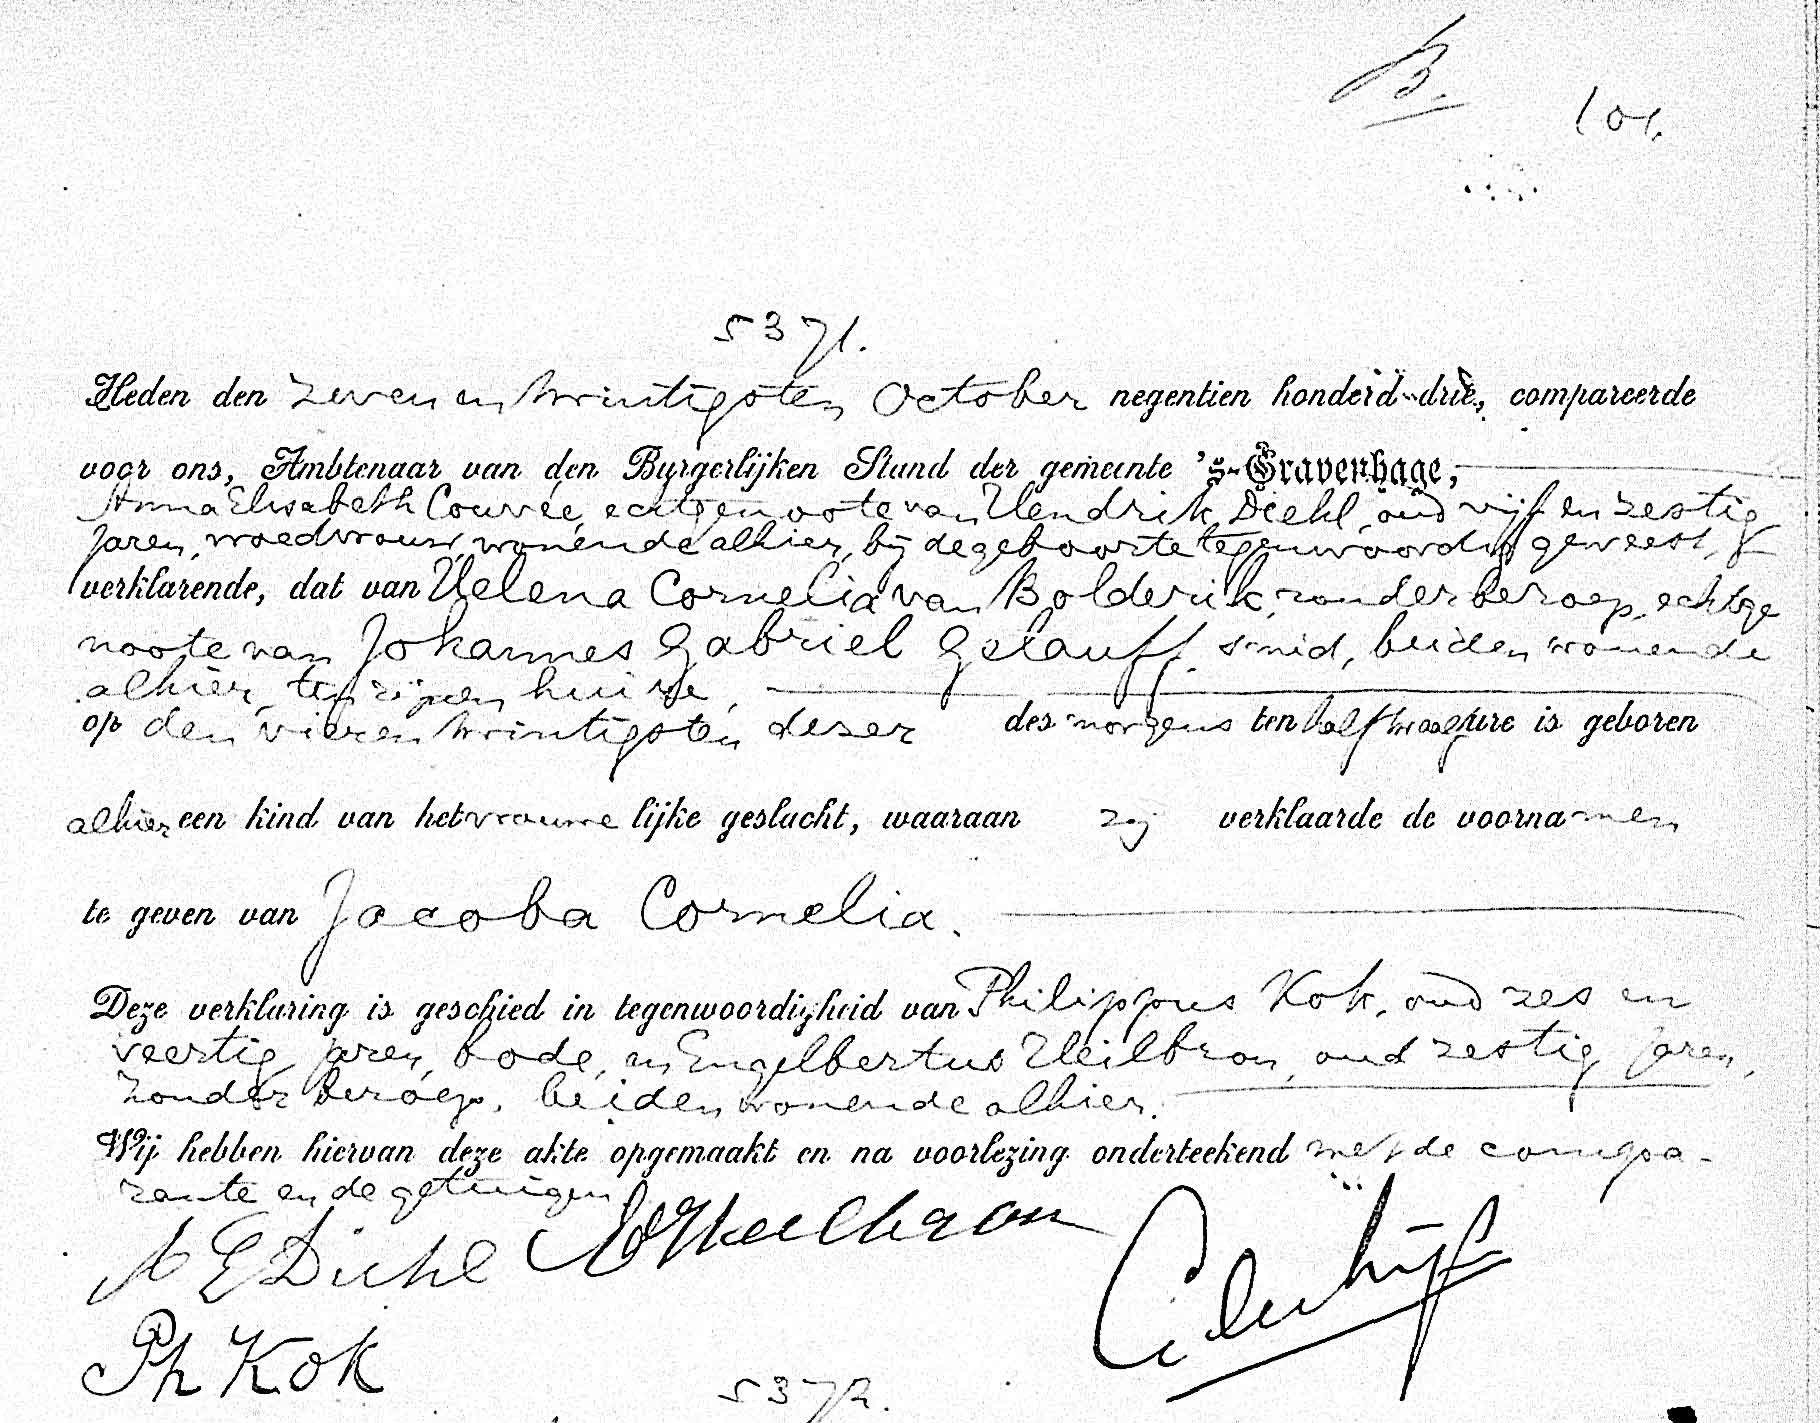 B.
101.
5371.
Heden den zeven en twintigsten October negentien honderd drie, compareerde
voor ons, Ambtenaar van den Burgerlijken Stand der gemeente 's-Gravenhage,
Anna Elisabeth Couvée, echtgenoote van Hendrik Diehl, oud vijf en zestig
jaren, vroedvrouw, wonende alhier, bij de geboorte tegenwoordig geweest,
verklarende, dat van Helena Cornelia van Bolderik, zonder beroep, echtge
noote van Johannes Gabriel Gelauff, smid, beiden wonende
alhier, ten zijnen huize,
op den vier en twintigsten dezer des morgens ten half twaalf ure is geboren
alhier een kind van het vrouwe lijke geslacht, waaraan zij verklaarde de voorna men
te geven van Jacoba Cornelia.
Deze verklaring is geschied in tegenwoordigheid van Philippus Kok, oud zes en
veertig jaren, bode, en Engelbertus Heilbron, oud zestig jaren,
zonder beroep, beiden wonende alhier.
Wij hebben hiervan deze akte opgemaakt en na voorlezing onderteekend met de compa-
rante en de getuigen
A E Diehl Heilbron
Ph Kok
5372.